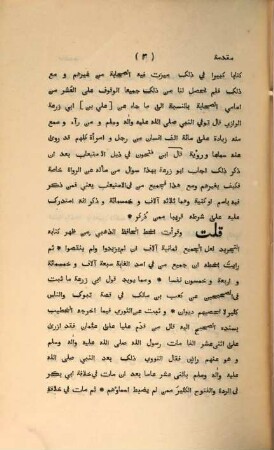 مقدمة ( ٣ )
كتابا كبيرا في ذلك ميزت فيه الصحابة من غيرهم و مع
ذلك فلم يحصل لنا من ذلك جميعا الوقوف على العشر من
اسامي الصحابة بالنسبة الى ما جاء عن ابي زرعة
الرازي قال توفي النبي صلى الله عليه وآله وسلم و من رآه و سمع
منه زيادة على مائة الف انسان من رجل و امرأة كلهم قد روى
عنه سماعا و روية قال ابن فتحون في ذيل الاستيعاب بعد ان
ذكر ذلك اجاب ابو زرعة بهذا سوال من سأله عن الرواة خاصة
فكيف بغيرهم ومع هذا فجميع من في الاستيعاب يعني ممن ذكر
فيه باسم او كنية و هما ثلاثة آلاف و خمسمائة و ذكر انه استدرك
عليه على شرطه قريبا ممن ذكر *
قلت وقرأت بخط الحافظ الذهبي من ظهر كتابه
التجريد لعل الجميع ثمانية آلاف ان لم يزيدوا لم ينقصوا * ثم
رأيت بخطه ان جميع من في اسد الغابة سبعة آلاف و خمسمائة
و اربعة و خمسون نفسا * و مما يويد قول ابي زرعة ما ثبت
في الصحيحين عن كعب بن مالك في قصة تبوك والناس
كثير لا يحصيهم ديوان * و ثبت عن الثوري فيما اخرجه الخطيب
بسنده الصحيح اليه قال من قدم عليا على عثمان فقد ازرى
على اثنى عشر الفا مات رسول الله صلى الله عليه و آله وسلم
و هو عنهم راض فقال النووي ذلك بعد النبي صلى الله
عليه و آله وسلم باثني عشر عاما بعد ان مات في خلافة ابي بكر
في الردة والفتوح الكثير ممن لم يضبط اسماؤهم * ثم مات في خلافة